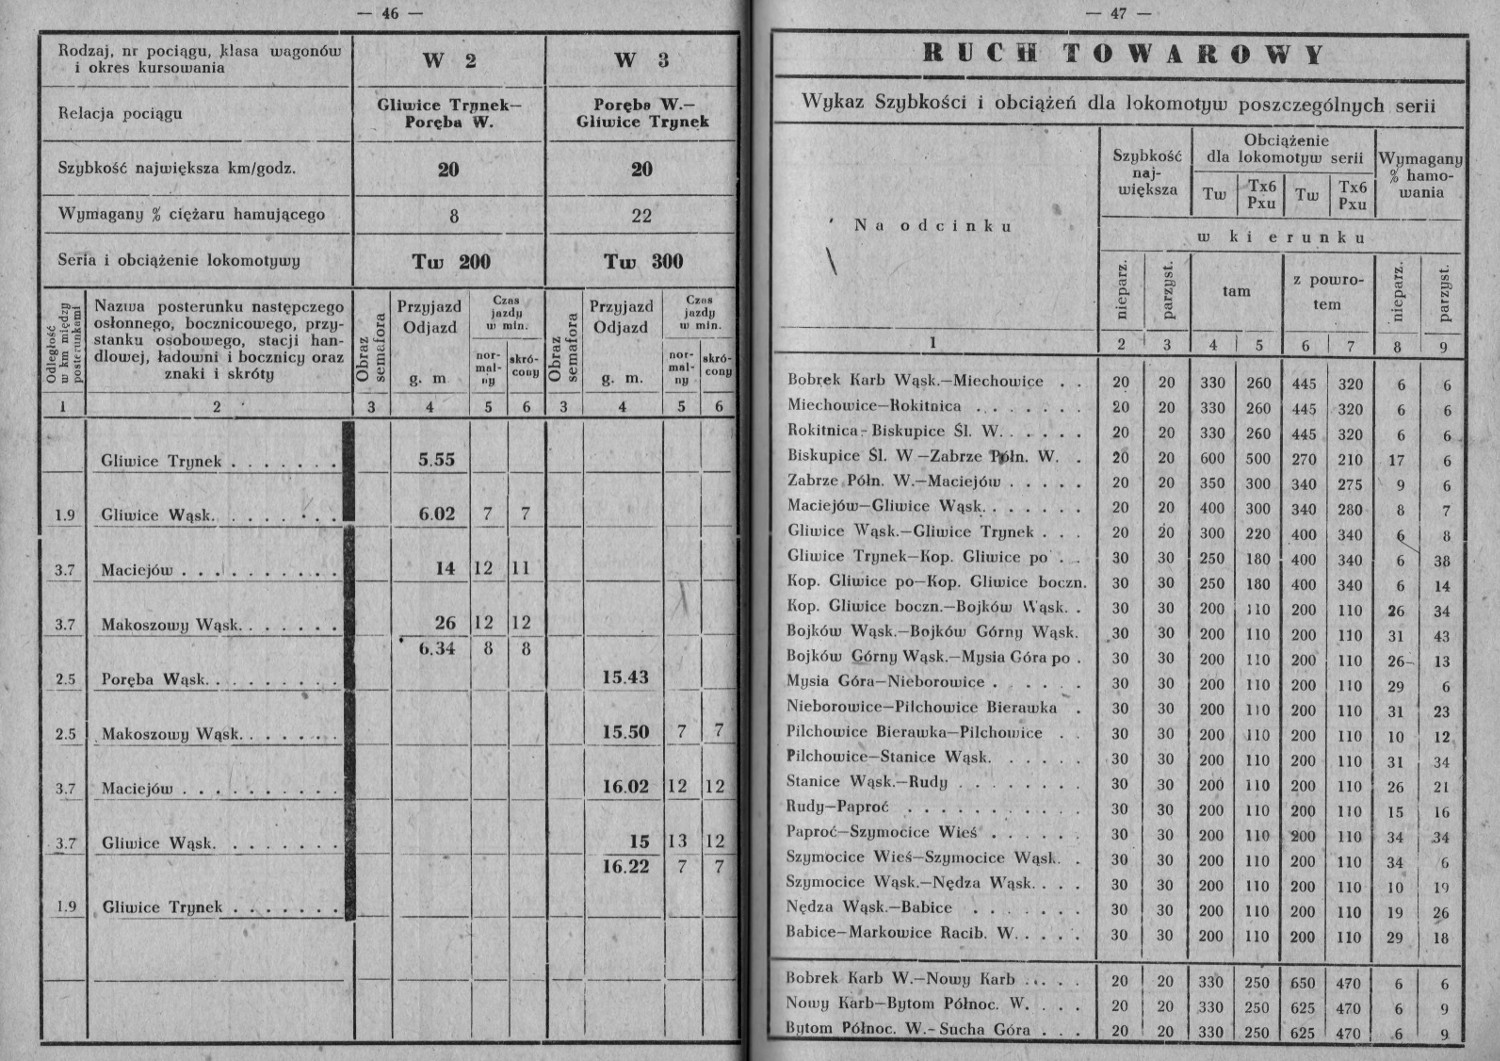 — 46 —
Rodzaj, nr pociągu, klasa wagonów
i okres kursowania
W 2
W 3
Relacja pociągu
Gliwice Trynek—
Poręba W.
Poręba W.—
Gliwice Trynek
Szybkość największa km/godz.
20
20
Wymagany % ciężaru hamującego
8
22
Seria i obciążenie lokomotywy
Tw 200
Tw 300
Odległość
w km między
posterunkami
Nazwa posterunku następczego
osłonnego, bocznicowego, przy-
stanku osobowego, stacji han-
dlowej, ładowni i bocznicy oraz
znaki i skróty
Obraz
semafora
Przyjazd
Odjazd
g. m
Czas
jazdy
w min.
nor-
mal-
ny
skró-
cony
Obraz
semafora
Przyjazd
Odjazd
g. m.
Czas
jazdy
w min.
nor-
mal-
ny
skró-
cony
1 2 3 4 5 6 3 4 5 6
Gliwice Trynek . . . . . . . 5.55
1.9 Gliwice Wąsk. . . . . . . . 6.02 7 7
3.7 Maciejów . . . . . . . . . . 14 12 11
3.7 Makoszowy Wąsk. . . . . . . 26 12 12
6.34 8 8
2.5 Poręba Wąsk. . . . . . . . 15.43
2.5 Makoszowy Wąsk. . . . . . . 15.50 7 7
3.7 Maciejów . . . . . . . . . . 16.02 12 12
3.7 Gliwice Wąsk. . . . . . . . 15 13 12
16.22 7 7
1.9 Gliwice Trynek . . . . . . .
— 47 —
RUCH TOWAROWY
Wykaz Szybkości i obciążeń dla lokomotyw poszczególnych serii
Na odcinku
Szybkość
naj-
większa
Obciążenie
dla lokomotyw serii
Tw
Tx6
Pxu
Tw
Tx6
Pxu
Wymagany
% hamo-
wania
w kierunku
nieparz.
parzyst.
tam
z powro-
tem
nieparz.
parzyst.
1 2 3 4 5 6 7 8 9
Bobrek Karb Wąsk.—Miechowice . . 20 20 330 260 445 320 6 6
Miechowice—Rokitnica . . . . . . . 20 20 330 260 445 320 6 6
Rokitnica - Biskupice Śl. W. . . . . . 20 20 330 260 445 320 6 6
Biskupice Śl. W —Zabrze Półn. W. . 20 20 600 500 270 210 17 6
Zabrze Półn. W.—Maciejów . . . . . 20 20 350 300 340 275 9 6
Maciejów—Gliwice Wąsk. . . . . . . 20 20 400 300 340 280 8 7
Gliwice Wąsk.—Gliwice Trynek . . . 20 20 300 220 400 340 6 8
Gliwice Trynek—Kop. Gliwice po . . 30 30 250 180 400 340 6 38
Kop. Gliwice po—Kop. Gliwice boczn. 30 30 250 180 400 340 6 14
Kop. Gliwice boczn.—Bojków Wąsk. . 30 30 200 110 200 110 26 34
Bojków Wąsk.—Bojków Górny Wąsk. 30 30 200 110 200 110 31 43
Bojków Górny Wąsk.—Mysia Góra po . 30 30 200 110 200 110 26 13
Mysia Góra—Nieborowice . . . . . 30 30 200 110 200 110 29 6
Nieborowice—Pilchowice Bierawka . 30 30 200 110 200 110 31 23
Pilchowice Bierawka—Pilchowice . . 30 30 200 110 200 110 10 12
Pilchowice—Stanice Wąsk. . . . . . 30 30 200 110 200 110 31 34
Stanice Wąsk.—Rudy . . . . . . . . 30 30 200 110 200 110 26 21
Rudy—Paproć . . . . . . . . . . . 30 30 200 110 200 110 15 16
Paproć—Szymocice Wieś . . . . . . 30 30 200 110 200 110 34 34
Szymocice Wieś—Szymocice Wąsk. . 30 30 200 110 200 110 34 6
Szymocice Wąsk.—Nędza Wąsk. . . . 30 30 200 110 200 110 10 19
Nędza Wąsk.—Babice . . . . . . . 30 30 200 110 200 110 19 26
Babice—Markowice Racib. W. . . . . 30 30 200 110 200 110 29 18
Bobrek Karb W.—Nowy Karb . . . . 20 20 330 250 650 470 6 6
Nowy Karb—Bytom Północ. W. . . . 20 20 330 250 625 470 6 9
Bytom Północ. W.-Sucha Góra . . . 20 20 330 250 625 470 6 9